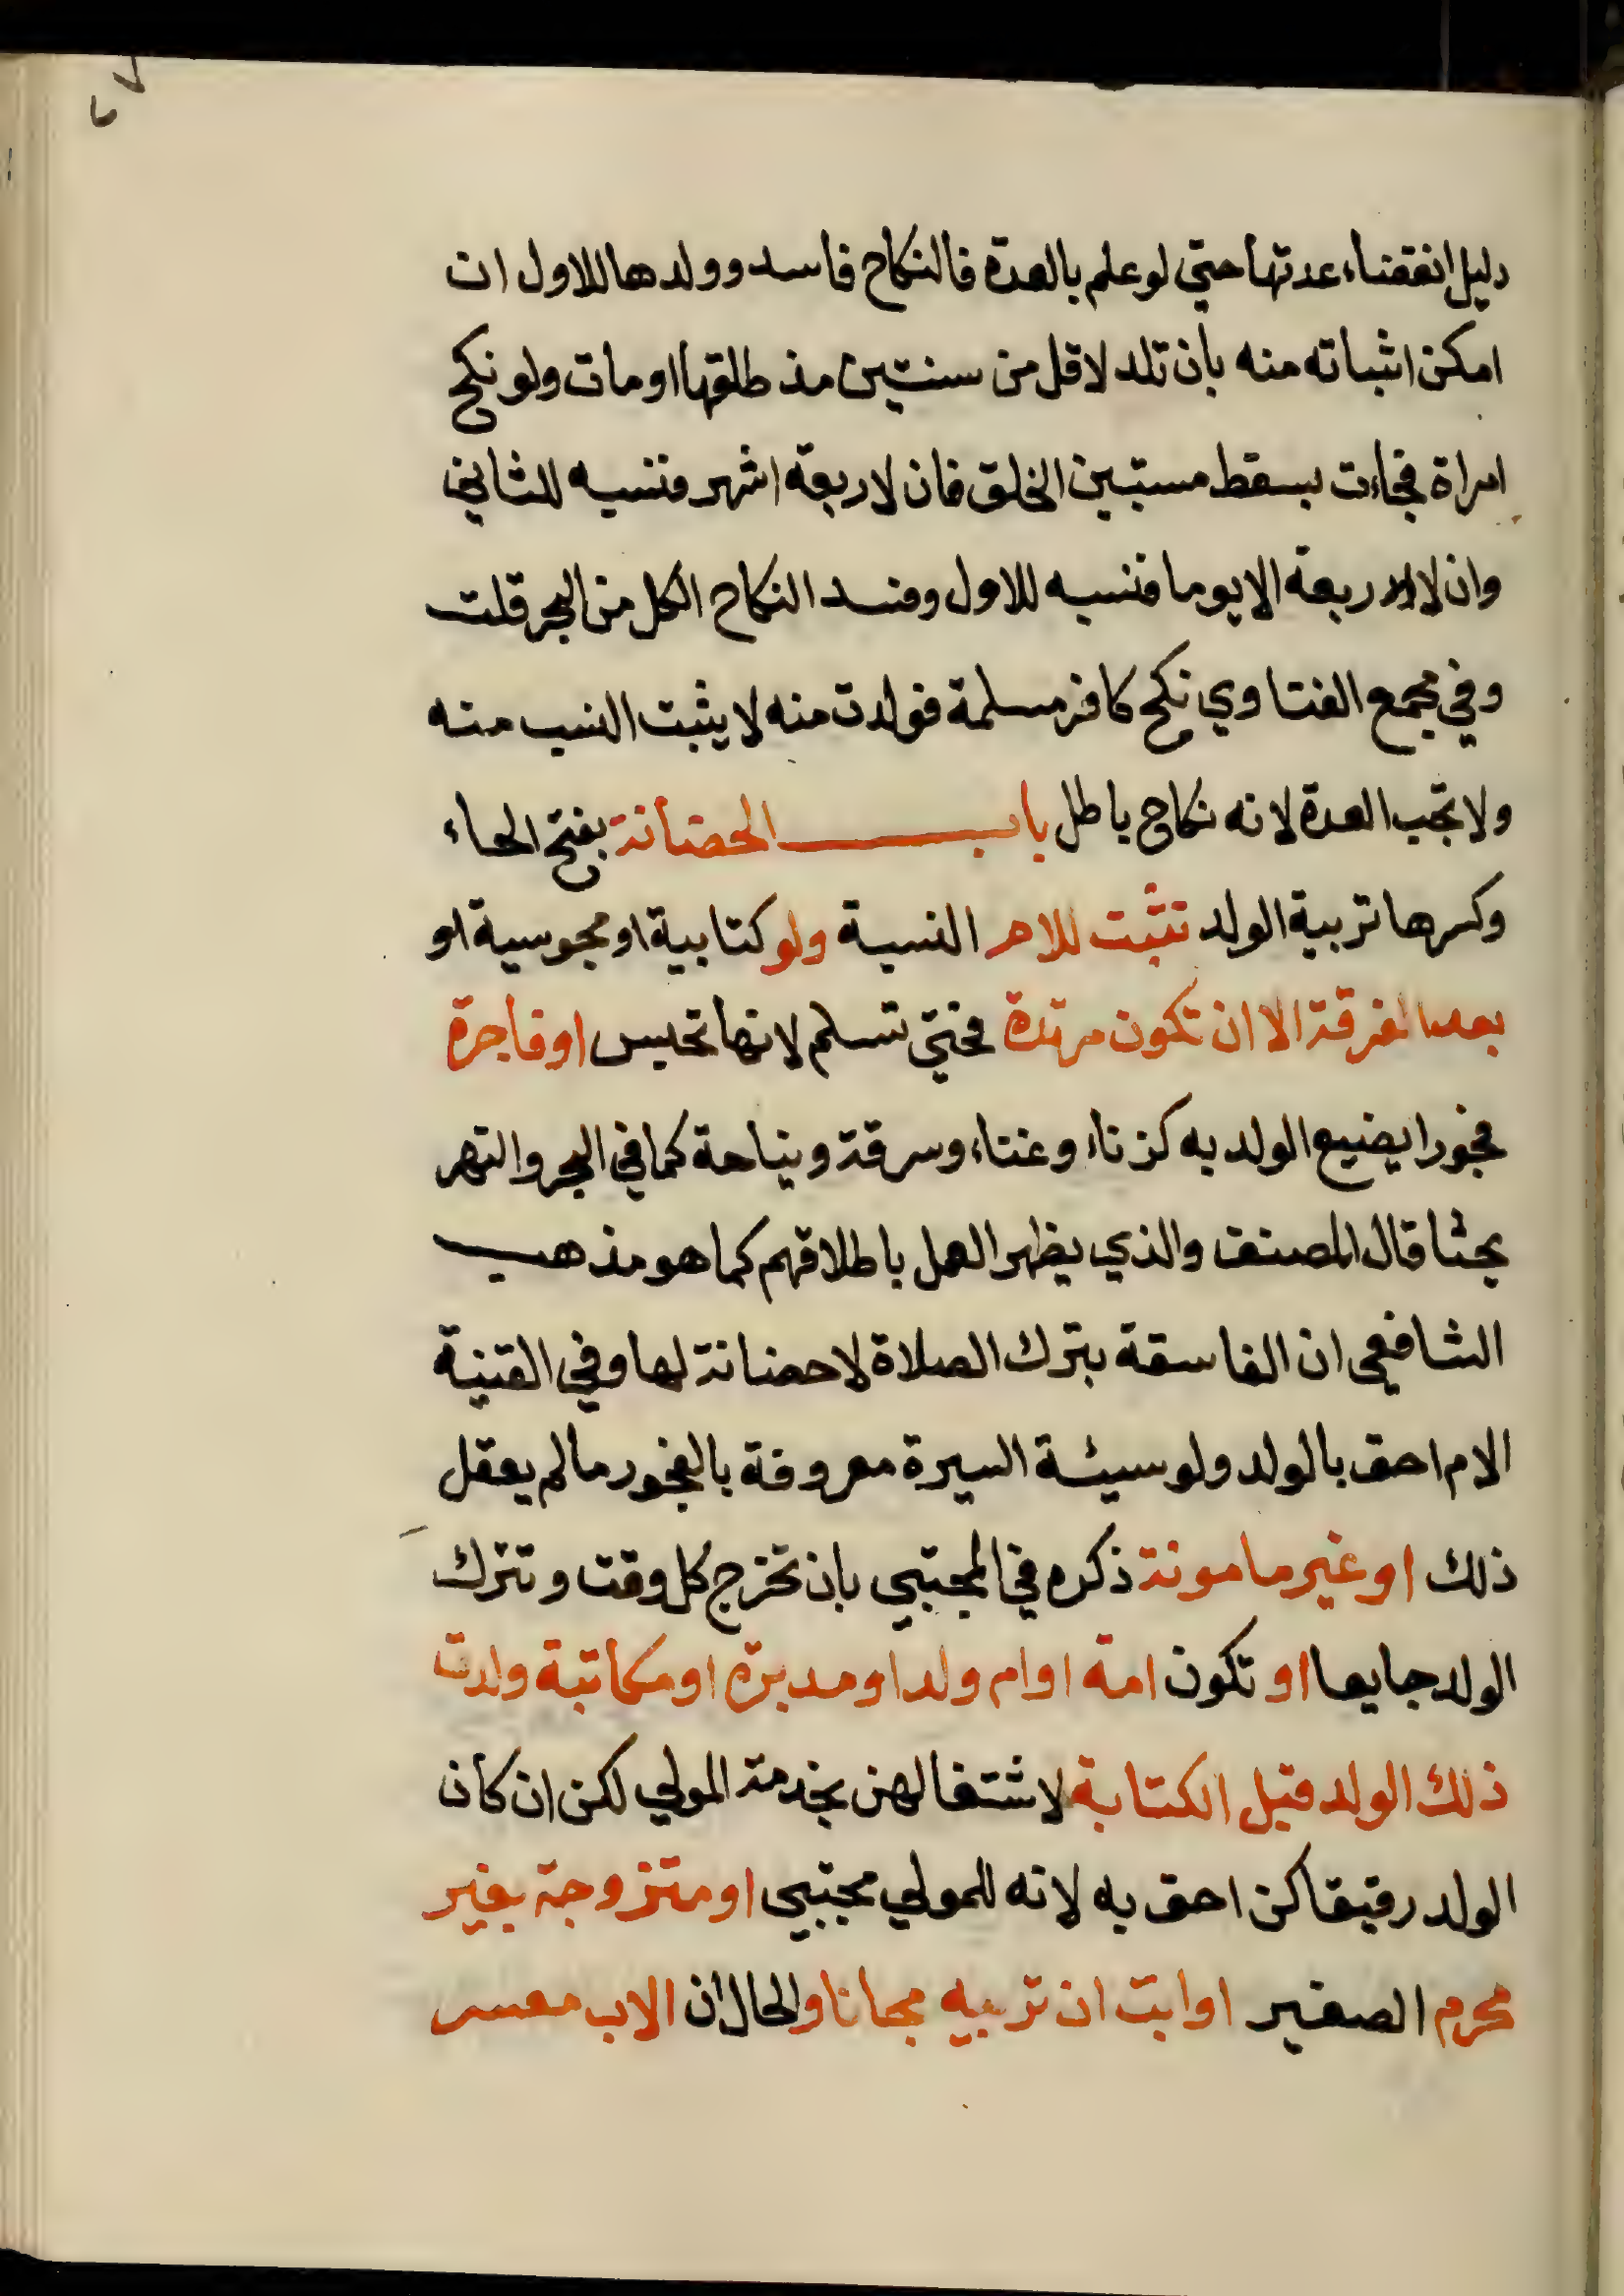 دليل انقضاء عدتها حتي لو علم بالعدة فالنكاح فاسد وولدها للاول ان
امكن اثباته منه بان تلد لاقل من سنتين مذ طلقها او مات ولو نكح
امراة فجاءت بسقط مستبين الخلق فان لاربعة اشهر فنسبه للثاني
وان لاربعة الايوما فنسبه للاول وفسد النكاح الكل من البحر قلت
وفي مجمع الفتاوي نكح كافر مسلمة فولدت منه لا يثبت النسب منه
ولا تجب العدة لانه نكاح باطل باب الحضانة بفتح الحاء
وكسرها تربية الولد تثبت للام النسبية ولو كتابية او مجوسية او
بعد الفرقة الا ان تكون مرتدة فحتي تسلم لانها تحبس او فاجرة
فجورا يضيع الولد به كزناء وغناء وسرقة ونياحة كما في البحر والنهر
بحثا قال المصنف والذي يظهر العمل باطلاقهم كما هو مذهب
الشافعي ان الفاسقة بترك الصلاة لا حضانة لها وفي القنية
الام احق بالولد ولو سيئة السيرة معروفة بالفجور ما لم يعقل
ذلك او غير مامونة ذكره في المجتبي بان تخرج كل وقت وتترك
الولد جايعا او تكون امة او ام ولد او مدبرة او مكاتبة ولدت
ذلك الولد قبل الكتابة لاشتغالهن بخدمة المولي لكن ان كان
الولد رقيقا كن احق به لانه للمولي مجتبي او متزوجة بغير
محرم الصغير او ابت ان تربيه مجانا والحال ان الاب معسر